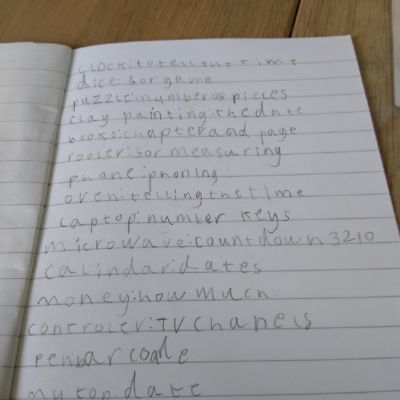 clock:to tell the time
dice:for game
puzzle:number of pieces
clay painting:the date
books:chapter and page
rooler:for measuring
phone:phoning
oven:telling the time
laptop:number keys
microwave:countdown 3210
calindar:dates
money:how much
controler:TV chanels
pen:bar code